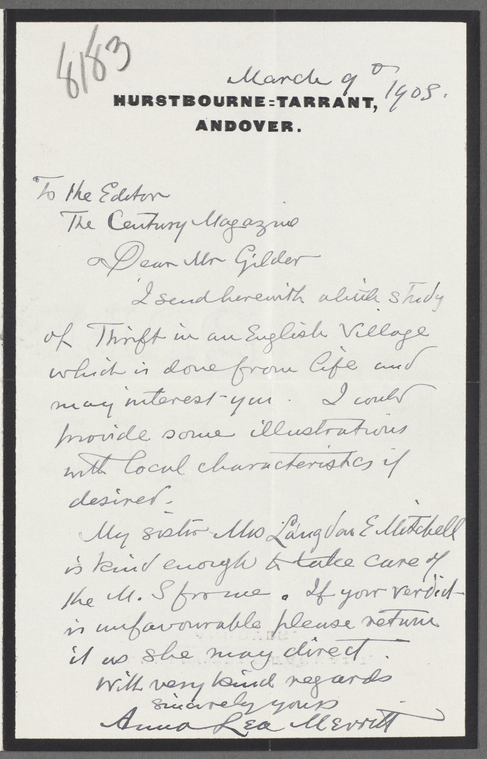 8183
March 9th 1908.
HURSTBOURNE=TARRANT,
ANDOVER.
To the Editor
The Century Magazine
Dear Mr Gilder
I send herewith a little study
of Thrift in an English Village
which is done from life and
may interest you. I could
provide some illustrations
with local characteristics if
desired.
My sister Mrs Langdon E Mitchell
is kind enough to take care of
the M. S from me. If your verdict
is unfavourable please return
it as she may direct.
With very kind regards
sincerely yours
Anna Lea Merritt